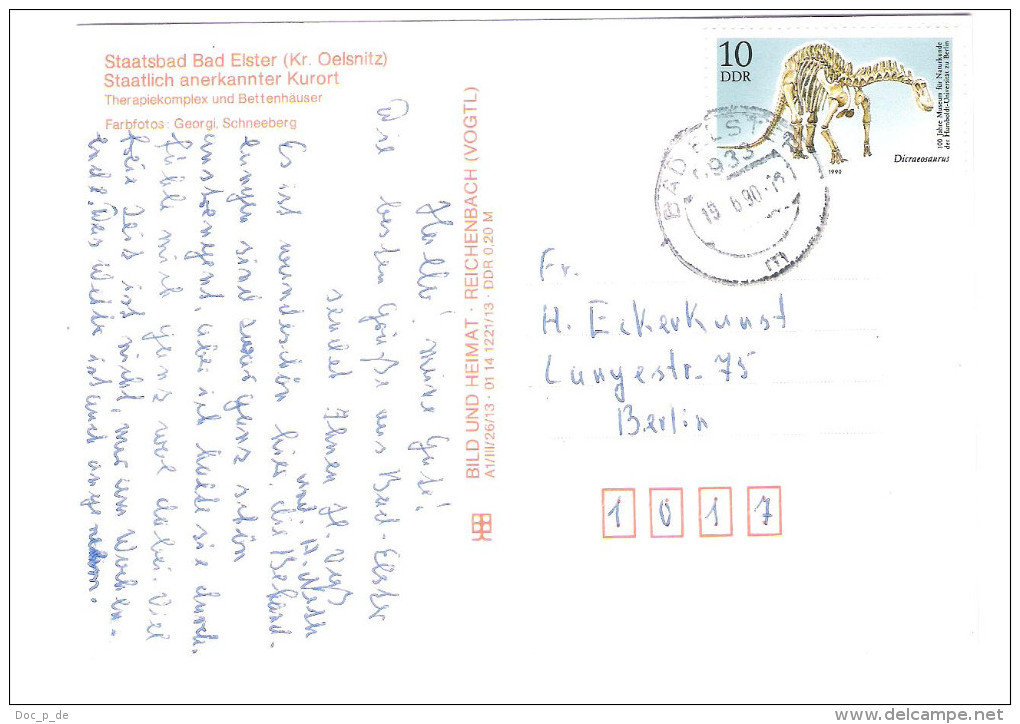 Staatsbad Bad Elster (Kr. Oelsnitz)
Staatlich anerkannter Kurort
Therapiekomplex und Bettenhäuser
Farbfotos: Georgi, Schneeberg
BILD UND HEIMAT · REICHENBACH (VOGTL)
A1/III/26/13 · 01 14 1221/13 · DDR 0,20 M
Hallo! meine Gute!
Die besten Grüße aus Bad-Elster
sendet Ihnen H.
und
Es ist wunderschön hier, die Behand-
lungen sind ganz schön
anstrengent, aber ich halte sie durch.
fühle mich ganz wol dabei. Viel
freie Zeit ist nicht, nur am Wochen-
ende. Das Wetter ist auch angenehm.
10
DDR
100 Jahre Museum für Naturkunde
der Humboldt-Universität zu Berlin
Dicraeosaurus
1990
BAD ELSTER
9933
19.6.90-19
m
Fr.
H. Eckerkunst
Langestr. 75
Berlin
1 0 1 7
Doc_p_de
©delcampe.net